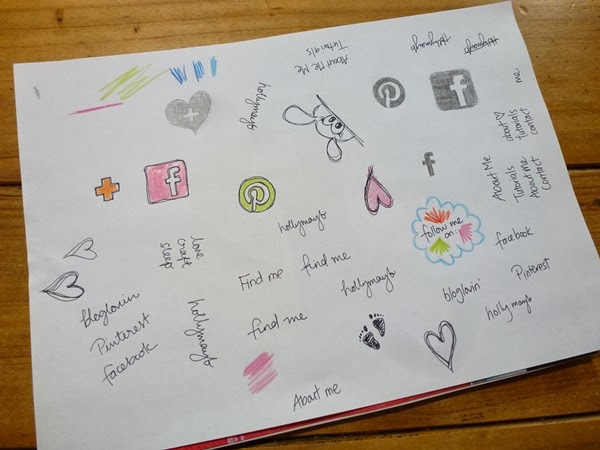 About Me Me
Tutorials
hollymayb
hollymayb
hollymayb
me
about
tutorials
contact
hollymayb
f
f
f
About Me
Tutorials
About me
Contact
hollymayb
love
craft
sleep
follow me
on:
facebook
Find me
find me
hollymayb
bloglovin'
Pinterest
holly mayb
bloglovin
Pinterest
facebook
hollymayb
find me
About me